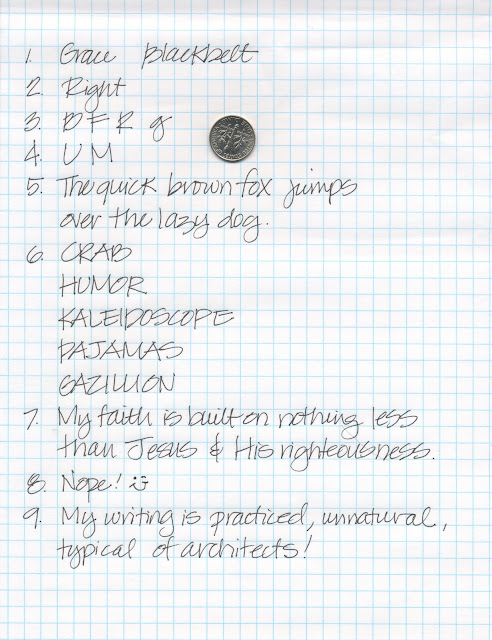 1. Grace Blackbelt
2. Right
3. B F R g
4. U M
5. The quick brown fox jumps
over the lazy dog.
6. CRAB
HUMOR
KALEIDOSCOPE
PAJAMAS
GAZILLION
7. My faith is built on nothing less
than Jesus & His righteousness.
8. Nope! :)
9. My writing is practiced, unnatural,
typical of architects!